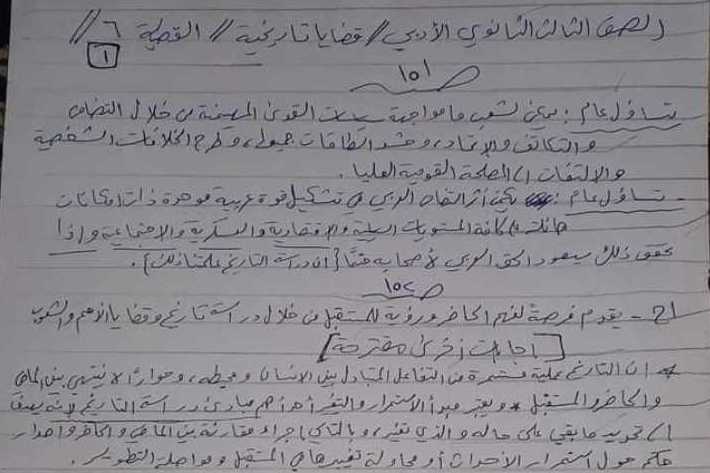 الصف الثالث الثانوي الأدبي // قضايا تاريخية // القضية ٦ //
١
ص ١٥١
تساؤل عام : يمكن لشعب ما مواجهة سياسات القوى المهيمنة من خلال التضامن
والتكاتف والإتحاد، وحشد الطاقات جميعها، وطرح الخلافات الشخصية
والالتفات إلى المصلحة القومية العليا .
- تساؤل عام : يكمن أثر التضامن العربي في تشكيل قوة عربية موحدة ذات إمكانات
هائلة على كافة المستويات السياسية والاقتصادية والعسكرية والاجتماعية وإذا
تحقق ذلك سيعود الحق العربي لأصحابه حتماً { إن دراسة التاريخ علمتنا ذلك } .
ص ١٥٢
ج١ - يقدم فرصة لفهم الحاضر ورؤية للمستقبل من خلال دراسة تاريخ وقضايا الأمم والشعوب
[ إجابات أخرى مقترحة ]
* إن التاريخ عملية مستمرة من التفاعل المتبادل بين الإنسان ومحيطه، وحواراً لا ينتهي بين الماضي
والحاضر والمستقبل * ويعتبر مبدأ الاستمرار والتغير أحد أهم مبادئ دراسة التاريخ لأنه يهدف
إلى تحديد ما بقي على حاله والذي تغير، وبالتالي إجراء مقارنة بين الماضي والحاضر وإصدار
حكم حول استمرار الأحداث أو محاولة تغييرها في المستقبل ومواصلة التطوير .